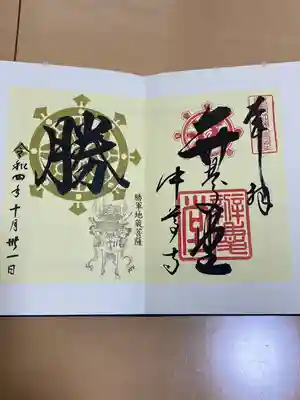 奉拝
弁慶堂
中尊寺
勝
勝軍地蔵菩薩
令和四年十月卅一日